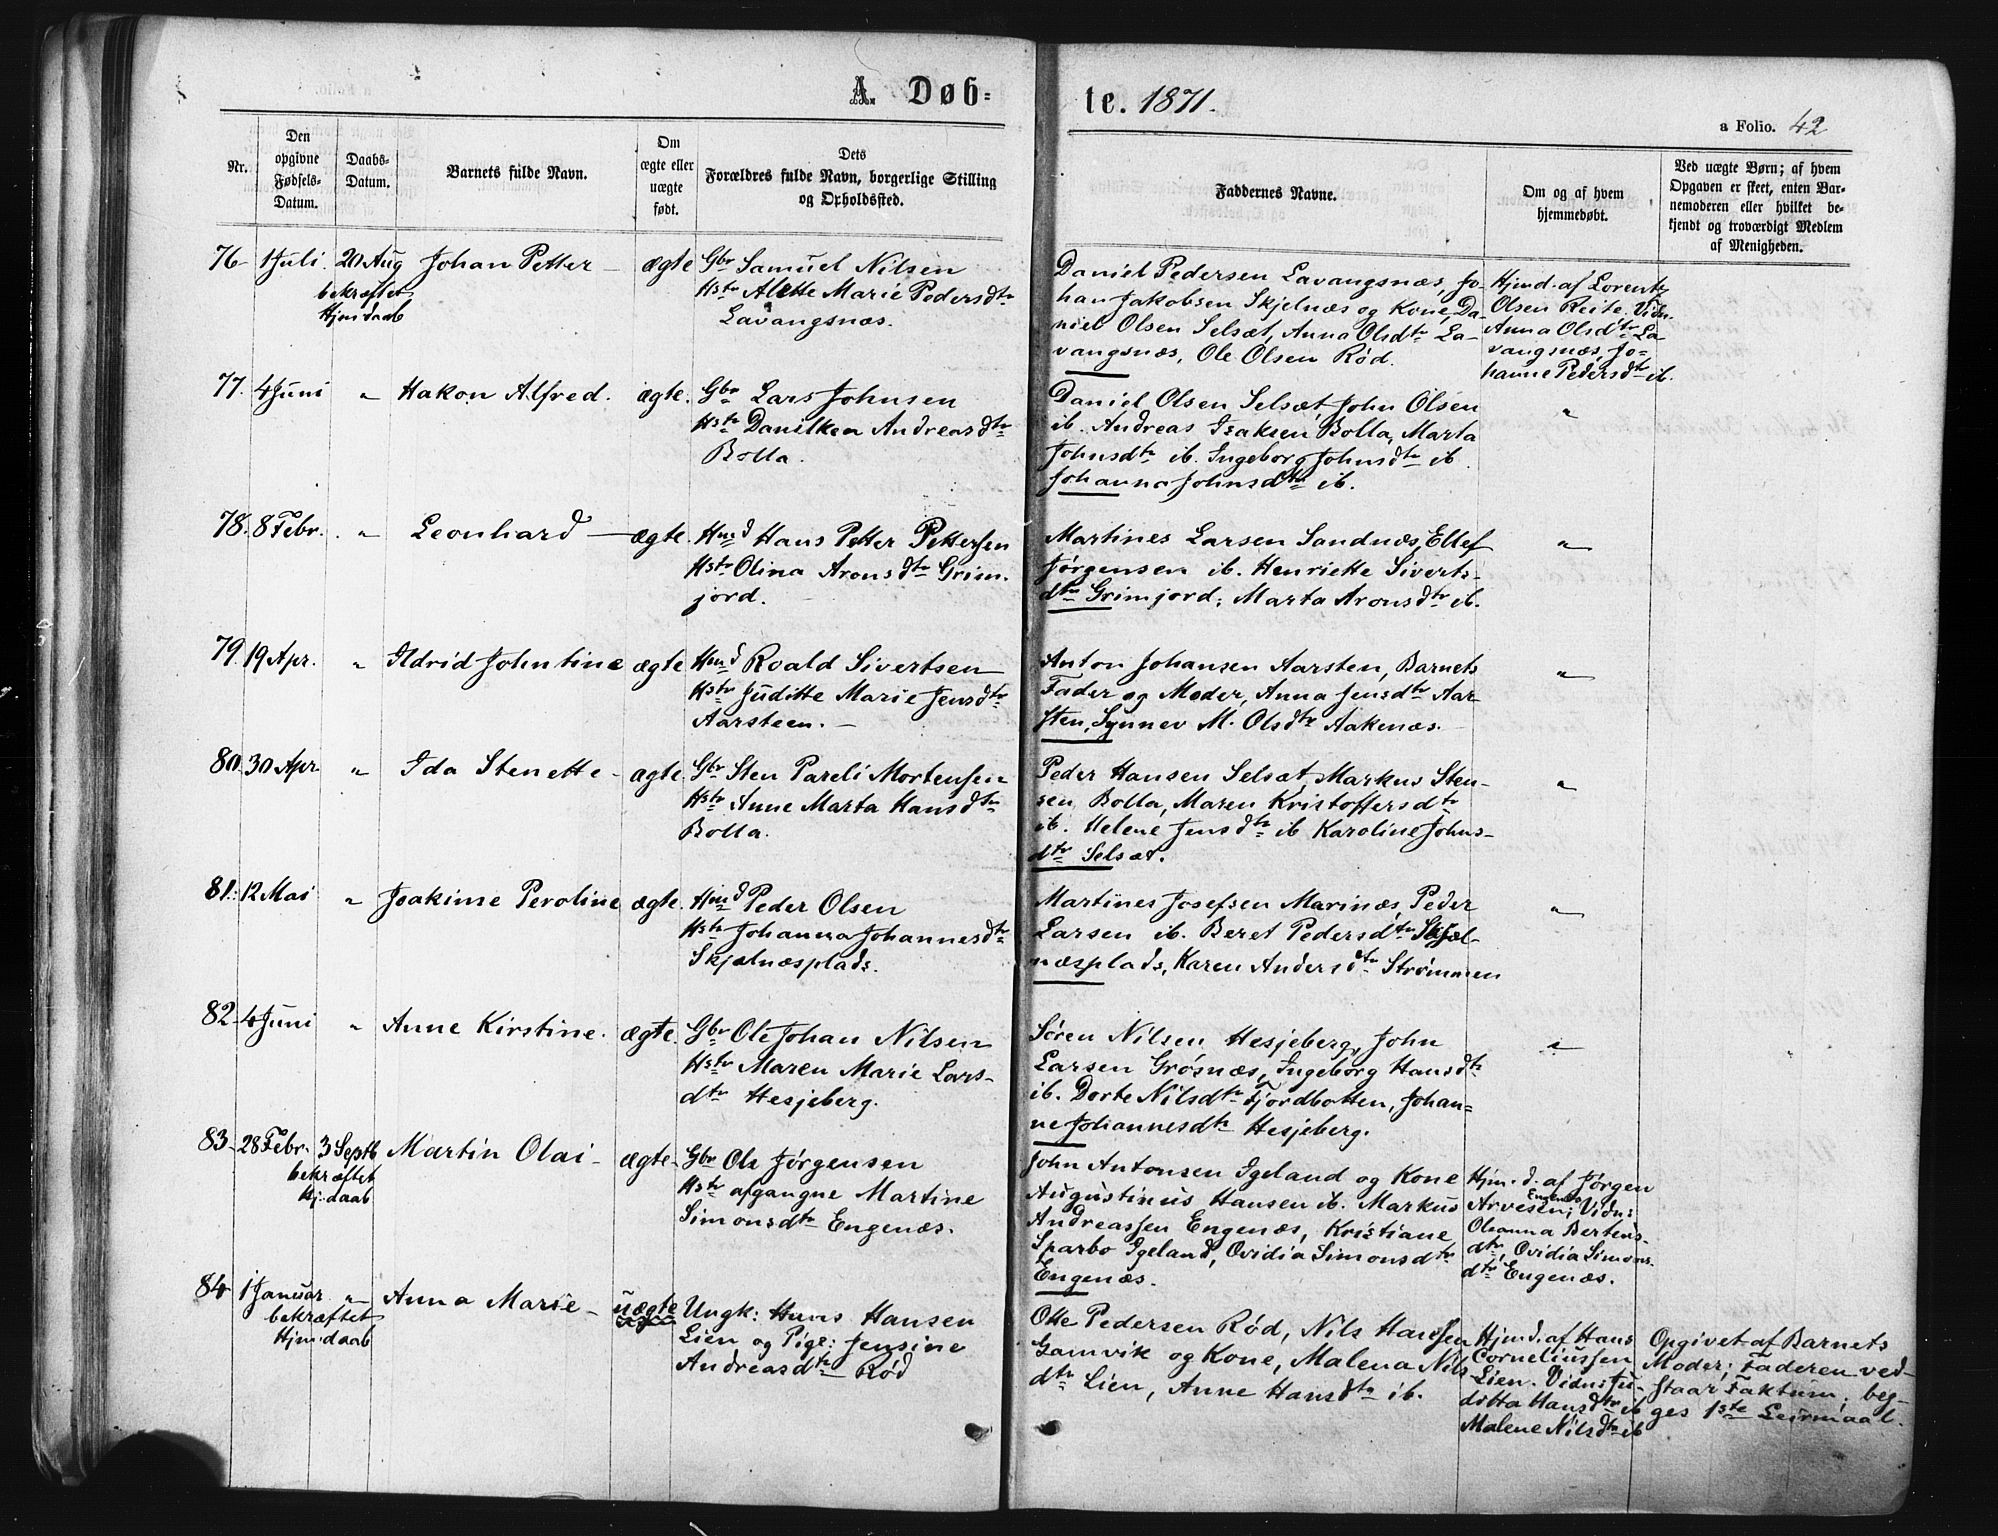 A. Døb=
te. 1871.
a Folio. 42
Nr.
Den
opgivne
Fødsels-
Datum.
Daabs-
Datum.
Barnets fulde Navn.
Om
ægte eller
uægte
født.
Dets
Forældres fulde Navn, borgerlige Stilling
og Opholdssted.
Faddernes Navne.
Om og af hvem
hjemmedøbt.
Ved uægte Børn; af hvem
Opgaven er skeet, enten Bar-
nemoderen eller hvilket be-
kjendt og troværdigt Medlem
af Menigheden.
76 1 Juli. 20 Aug Johan Petter ægte
bekræftet
Hjmdaab
Gbr Samuel Nilsen
Hstr Alette Marie Pedersdtr
Lavangsnæs.
Daniel Pedersen Lavangsnæs, Jo-
han Jakobsen Skjelnæs og Kone, Da-
niel Olsen Selsæt, Anna Olsdtr La-
vangsnæs, Ole Olsen Rød.
Hjmd. af Lorentz
Olsen Reite. Vidn.
Anna Olsdtr La-
vangsnæs, Jo-
hanne Pedersdtr ib.
77. 4 Juni " Hakon Alfred. ægte.
Gbr Lars Johnsen
Hstr Danilken Andreasdtr
Bolla.
Daniel Olsen Selsæt, John Olsen
ib. Andreas Isaksen Bolla, Marta
Johnsdtr ib. Ingeborg Johnsdtr ib
Johanna Johnsdtr ib.
"
78. 8 Febr. " Leonhard ægte.
Hmd Hans Petter Pettersen
Hstr Olina Aronsdtr Grim-
jord.
Martines Larsen Sandnæs, Ellef
Jørgensen ib. Henriette Siverts-
dtr Grimjord, Marta Aronsdtr ib.
"
79. 19 Apr. " Ildrid Johntine ægte
Hmd Roald Sivertsen
Hstr Juditte Marie Jensdtr
Aarsteen.
Anton Johansen Aarsten, Barnets
Fader og Moder, Anna Jensdtr Aar
sten, Synnev M. Olsdtr Aakenæs.
"
80. 30 Apr " Ida Stenette ægte
Gbr Sten Pareli Mortensen
Hstr Anne Marta Hansdtr
Bolla.
Peder Hansen Selsæt, Markus Sten-
sen, Bolla, Maren Kristoffersdtr
ib. Helene Jensdtr ib Karoline Johns-
dtr Selsæt.
"
81. 12 Mai " Joakime Peroline ægte.
Hmd Peder Olsen
Hstr Johanna Johannesdtr
Skjelnæsplads.
Martines Josefsen Marinæs, Peder
Larsen ib. Beret Pedersdtr Skjel-
næsplads, Karen Andersdtr Strømmen
"
82. 4 Juni " Anne Kirstine. ægte.
Gbr Ole Johan Nilsen
Hstr Maren Marie Lars-
dtr Hesjeberg.
Søren Nilsen Hesjeberg, John
Larsen Grøsnæs, Ingeborg Hansdtr
ib. Dorte Nilsdtr Fjordbotten, Johan=
ne Johannesdtr Hesjeberg.
"
83. 28 Febr. 3 Septb Martin Olai ægte
bekræftet
Hj.daab
Gbr Ole Jørgensen
Hstr afgangne Martine
Simonsdtr Engenæs.
John Antonsen Igeland og Kone
Augustinus Hansen ib. Markus
Andreassen Engenæs, Kristiane
Sparbo Igeland, Ovidia Simonsdtr
Engenæs.
Hjm.d. af Jørgen
Engenæs
Arvesen, Vidn:
Olianna Bertens-
dtr, Ovidia Simons-
dtr Engenæs.
84 1 Januar " Anna Marie uægte
bekræftet
Hjmdaab
Ungk: Hans Hansen
Lien og Pige: Jensine
Andreasdtr Rød
Otte Pedersen Rød, Nils Hansen
Gamvik og Kone, Malena Nils
dtr Lien, Anne Hansdtr ib.
Hjmd. af Hans
Corneliussen
Lien. Vidn: Ju-
ditta Hansdtr ib
Malene Nilsdtr ib
Opgivet af Barnets
Moder; Faderen ved-
staar Faktum, beg-
ges 1ste Leirmaal.